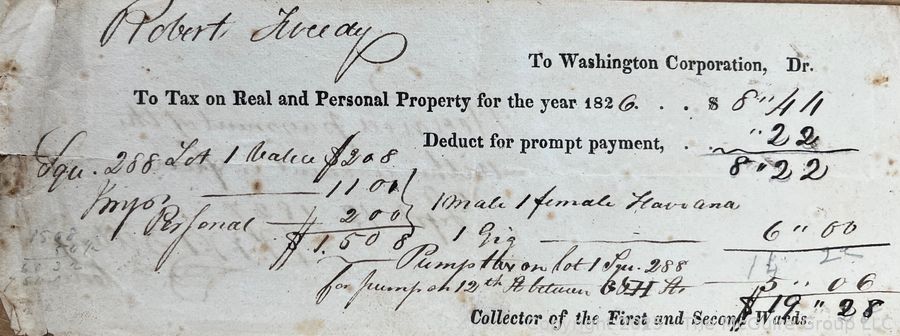 Robert Tweedy
To Washington Corporation, Dr.
To Tax on Real and Personal Property for the year 1826. . . $ 8 " 44
Deduct for prompt payment, . " 22
8 " 22
Squ. 288 Lot 1 Value $ 208
Impr 1100
1 male 1 female
Personal $ 200
6 " 00
$ 1.508
1 Gig
14 22
Pump on lot 1 Squ. 288
for pump on 12th St between G & H Sts 5 " 06
$ 19 " 28
Collector of the First and Second Wards.